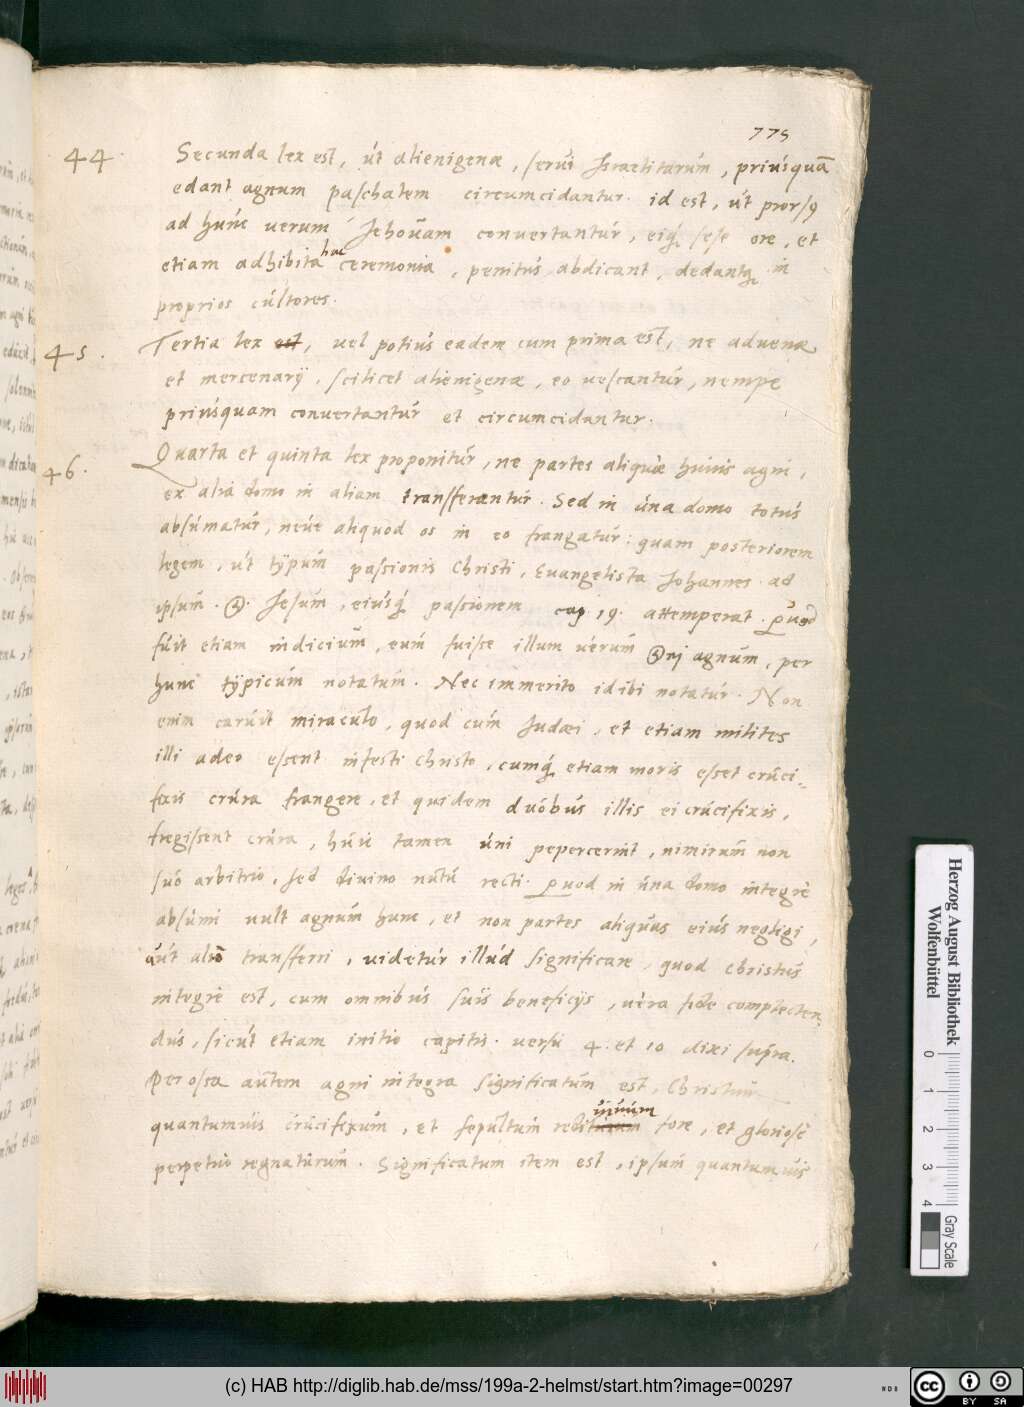 775
44. Secunda lex est, út alienigenæ, serui Israelitarúm, priúsquā
edant agnum paschatem circumcidantur. id est, út prorsꝰ
ad húnc verum Jehouam conuertantúr, eiq́ꝫ sese ore, et
etiam adhibita hac ceremonia, penitús abdicant, dedantqꝫ in
proprios cúltores.
45. Tertia lex est, vel potiús eadem cum prima est, ne aduenæ
et mercenarij, scilicet alienigenæ, eo vescantúr, nempe
priúsquam conuertantúr et circumcidantur.
46. Quarta et quinta lex proponitúr, ne partes aliquæ húiús agni,
ex aliā domo in aliam transferantúr. Sed in úna domo totús
absúmatúr, neúe aliquod os in eo frangatúr: quam posteriorem
legem, út typúm passionis Christi, Euangelista Johannes ad
ipsúm Jesúm, eiúsq́ꝫ passionem cap. 19. attemperat. Quod
fúit etiam indiciúm, eúm fuisse illum uérúm agnúm, per
húnc typicúm notatúm. Nec immerito id ibi notatúr. Non
enim carúit miraculo, quod cúm Judæi, et etiam milites
illi adeo essent infesti Christo, cumq́ꝫ etiam moris esset crúci-
fixis crúra frangere, et quidem duóbús illis ei crúcifixis,
fregissent crúra, húic tamen úni pepercerint, nimirúm non
súo arbitrio, sed diuino nútú recti. Quod in úna domo integrè
absúmi uult agnúm hunc, et non partes aliqúas eiús negligi,
aút aliò transferri, uidetúr illúd significare, quod Christús
integrè est, cum omnibús súis beneficijs, uéra fide complecten-
dús, sicút etiam initio capitis. versú 4. et 10 dixi súpra.
Per ossa aútem agni integra significatúm est, Christúm
quantumúis crúcifixúm, et sepúltúm uiuum fore, et gloriosè
perpetúò regnatúrúm. Significatum item est, ipsúm quantumúis
Herzog August Bibliothek
Wolfenbüttel
0 1 2 3 4
Gray Scale
(c) HAB http://diglib.hab.de/mss/199a-2-helmst/start.htm?image=00297
cc BY SA